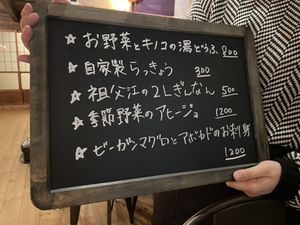 ★ お野菜とキノコの湯どうふ 800
★ 自家製らっきょう 300
★ 祖父江の2Lぎんなん 500
★ 季節野菜のアヒージョ 1200
★ ビーガンマグロとアボカドのお刺身 1200